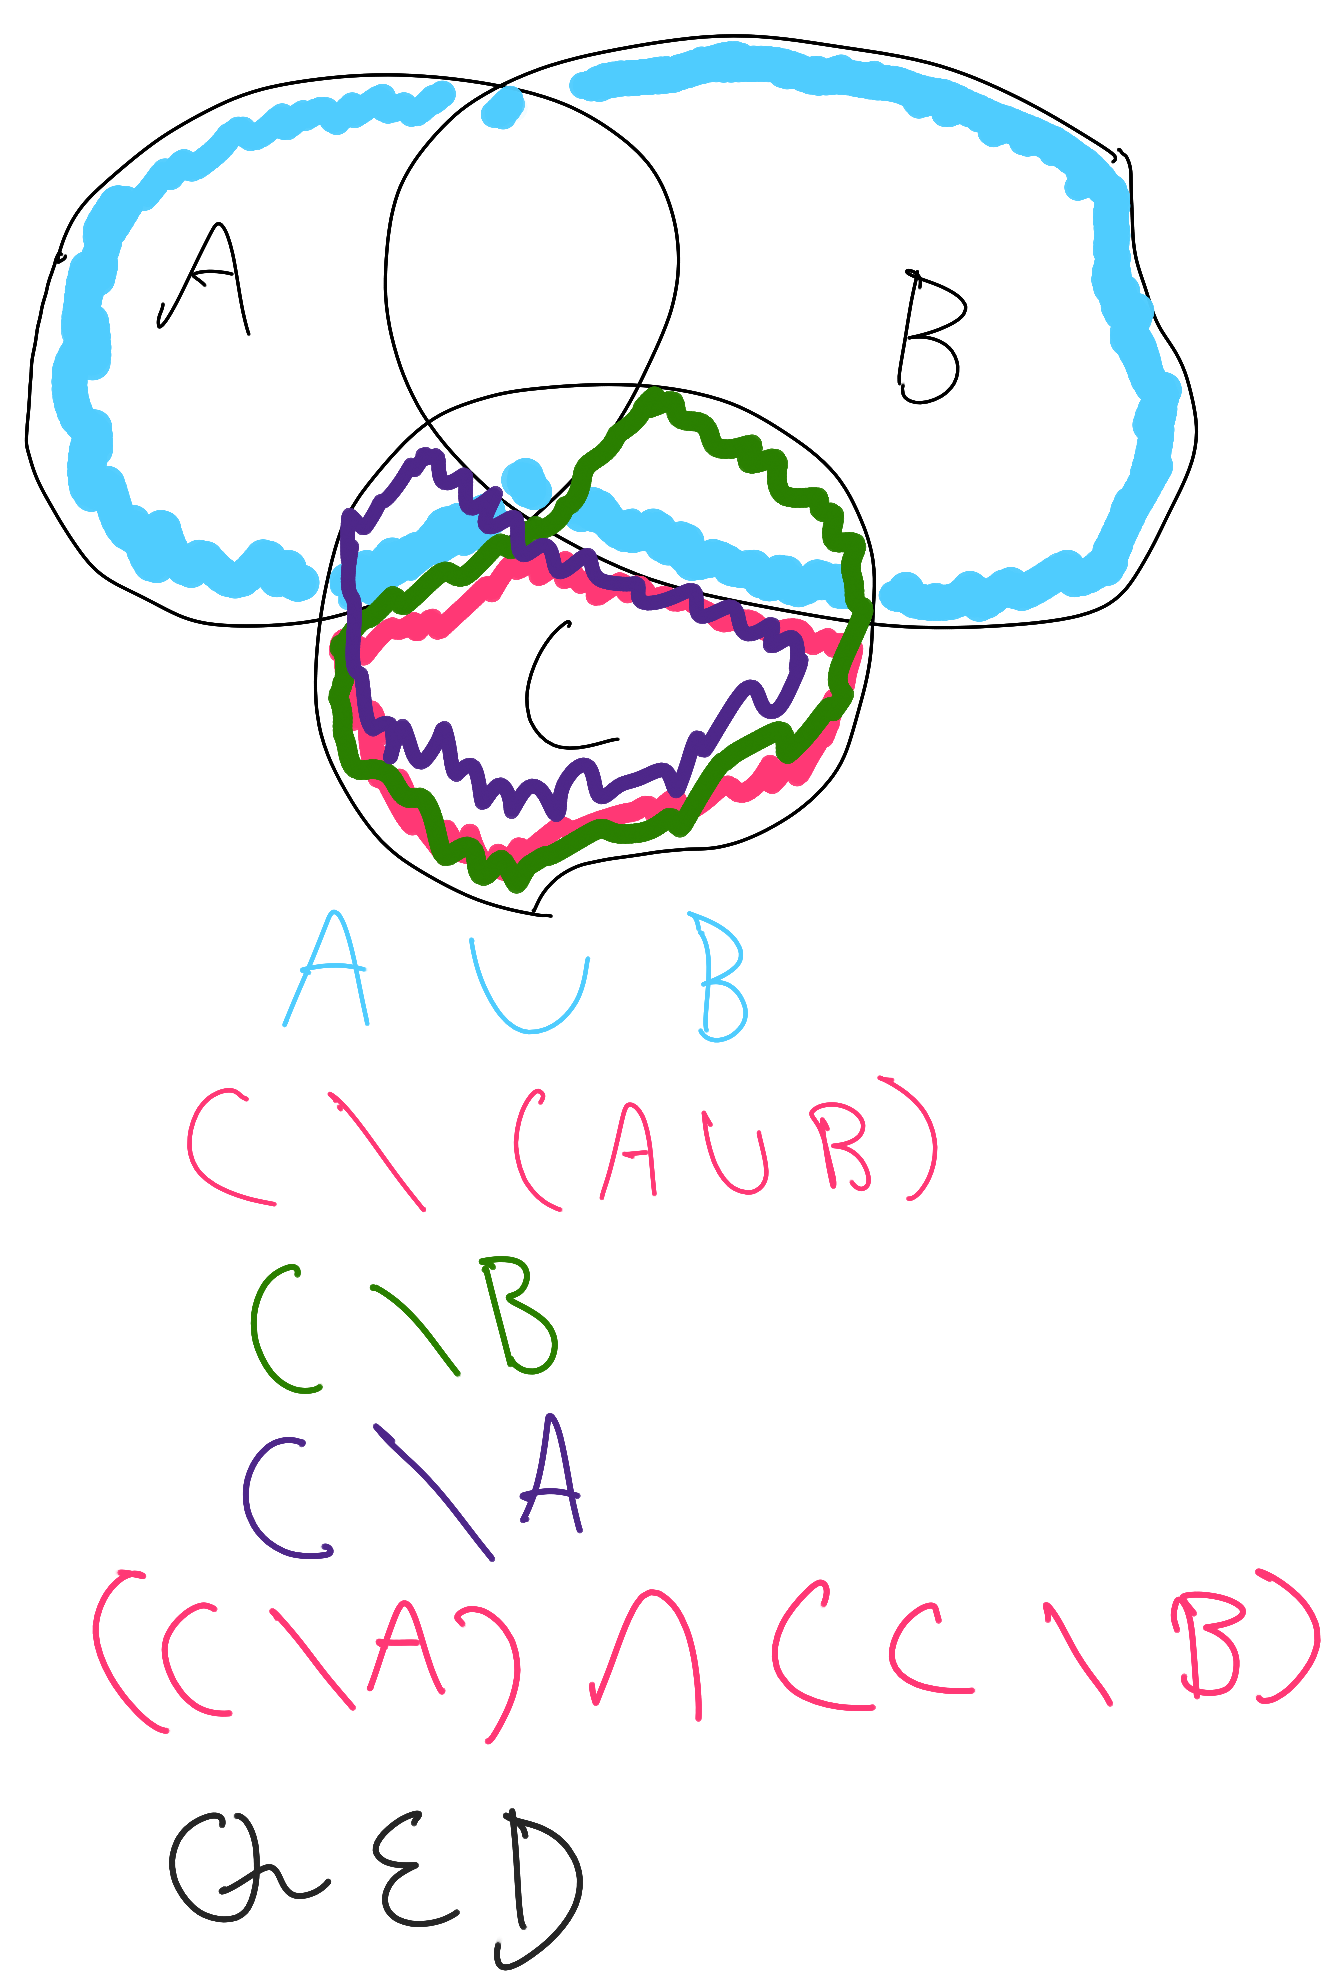 A
B
C
A ∪ B
C \ (A ∪ B)
C \ B
C \ A
((C \ A) ∩ (C \ B)
QED